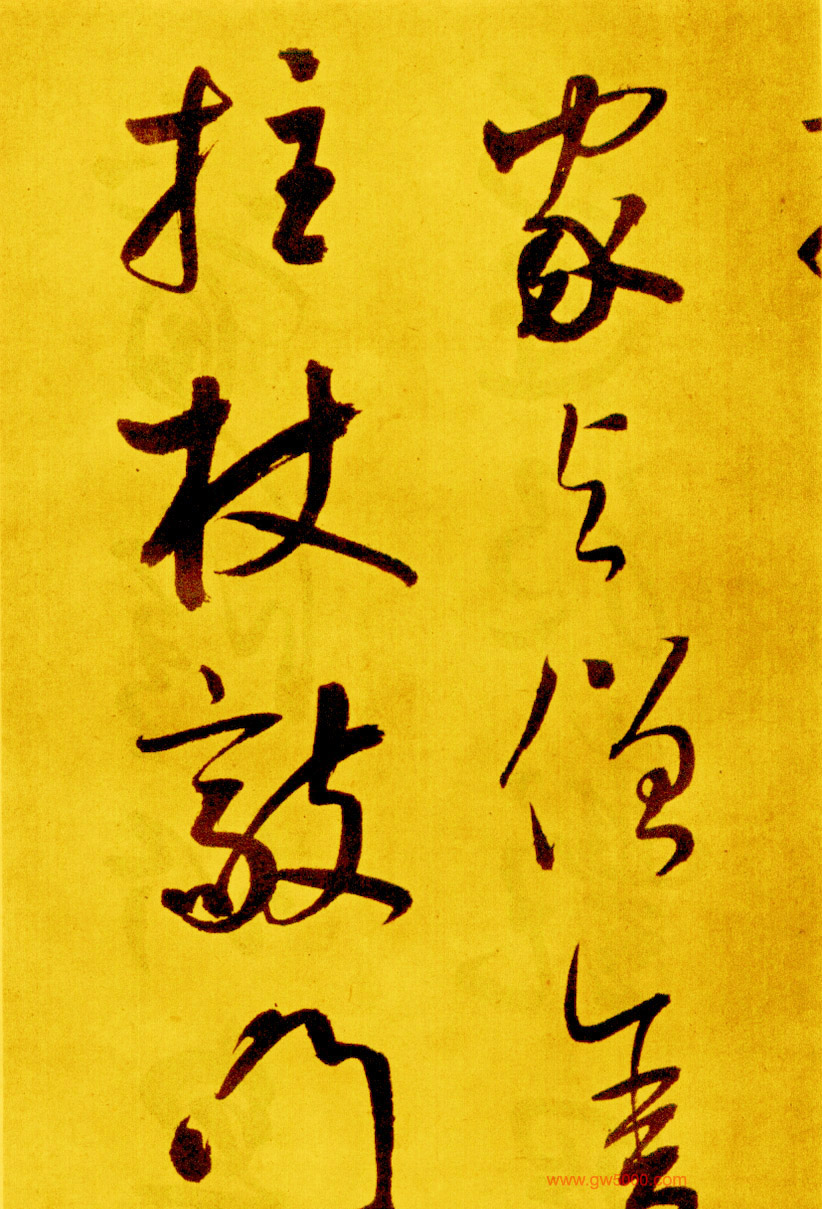 家与僧舍
拄杖敲門
www.gw5000.com